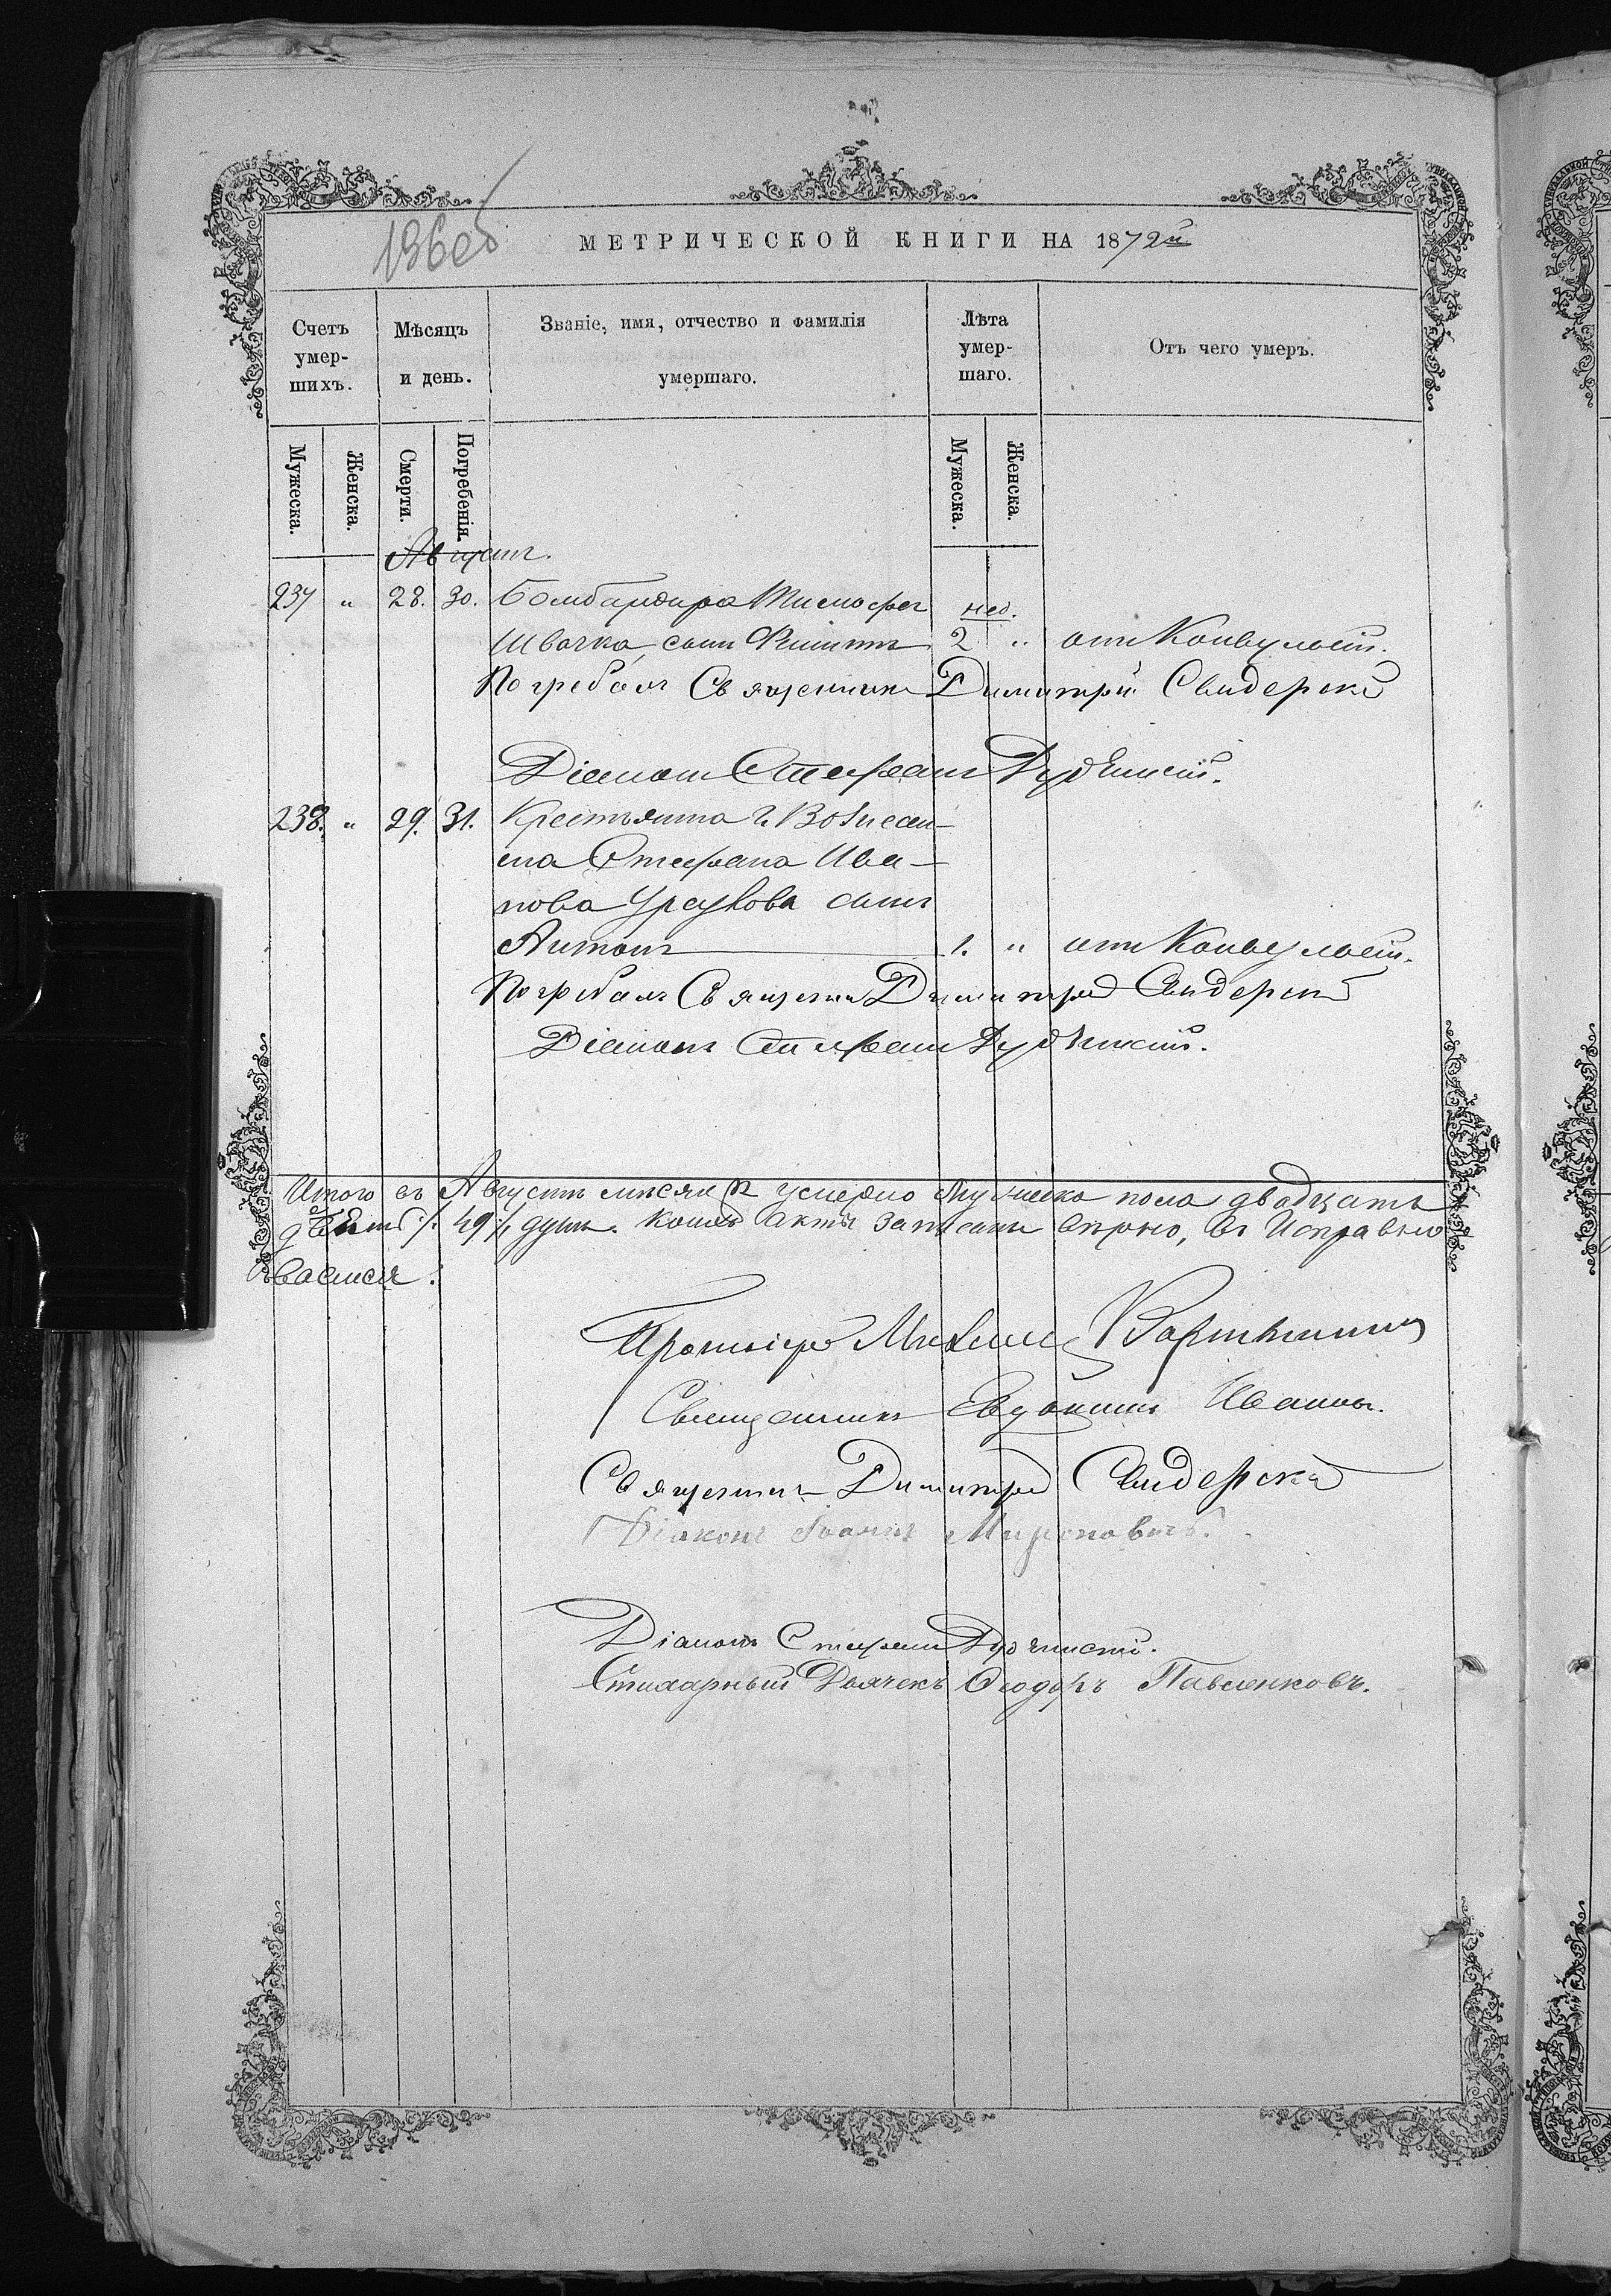 196об
МЕТРИЧЕСКОЙ КНИГИ НА 1872й
Счетъ умер-шихъ.
Мѣсяцъ и день.
Званіе, имя, отчество и фамилія умершаго.
Лѣта умер-шаго.
Отъ чего умеръ.
Мужеска.
Женска.
Смерти.
Погребенія.
Мужеска.
Женска.
Августъ.
237 " 28. 30. Бомбардира Тимофея нед.
Швачка, сынъ Филиппъ 2 " отъ Конвульсій.
Погребалъ Священникъ Димитрій Свидерскій
Діаконъ Стефанъ
238. " 29. 31. Крестьянина г. Вознесен-
ска Стефана Ива-
нова сынъ
Антонъ 1. " отъ Конвульсій.
Погребалъ Священникъ Димитрій Свидерскій
Діаконъ Стефанъ
Итого въ Августѣ мѣсяцѣ умерло Мужеска пола двадцать
душъ. Акты записаны вѣрно,
Протоіерей
Священникъ Евдокимъ
Священникъ Димитрій Свидерскій
Діаконъ Іоаннъ Мироновичъ.
Діаконъ Стефанъ
Стихарный Дьячекъ Ѳеодоръ Павленковъ.